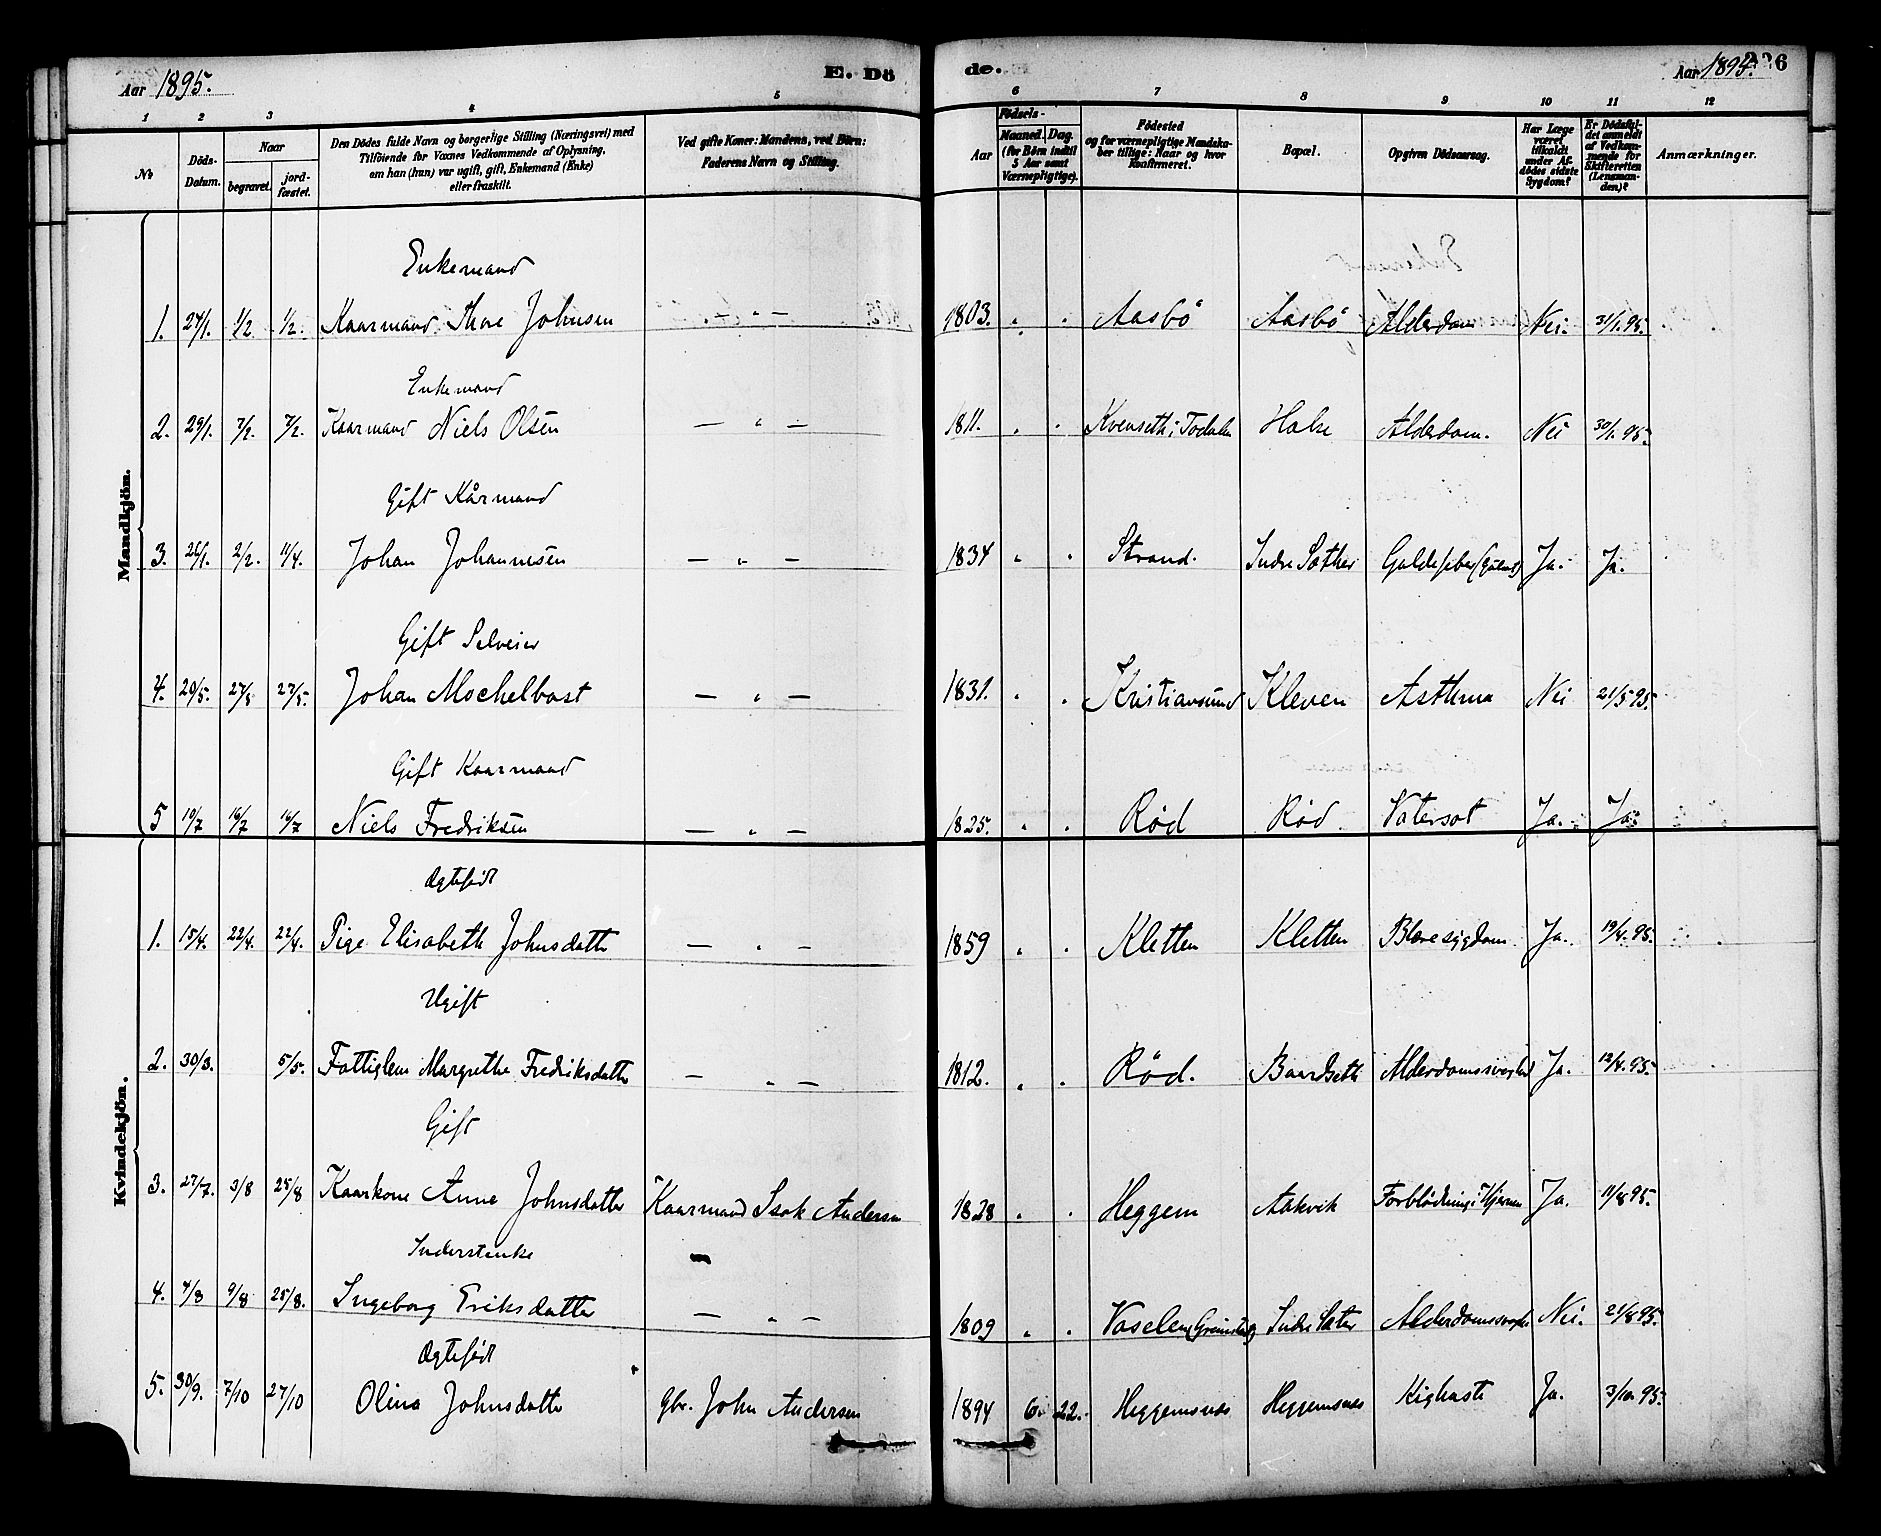 Aar 1895.
E. Dö
de.
Aar 1895.
236
1 2 3 4 5 6 7 8 9 10 11 12
No
Döds-Datum.
Naar
begravet.
jord-fæstet.
Den Dödes fulde Navn og borgerlige Stilling (Næringsvei) med
Tilföiende for Voxnes Vedkommende af Oplysning,
om han (hun) var ugift, gift, Enkemand (Enke)
eller fraskilt.
Ved gifte Koner: Mandens, ved Börn:
Faderens Navn og Stilling.
Födsels-
Aar
Maaned. Dag.
(for Börn indtil
5 Aar samt
Værnepligtige).
Födested
og for værnepligtige Mandska-
ber tillige: Naar og hvor
konfirmeret.
Bopæl.
Opgiven Dödsaarsag.
Har Læge
været
tilkaldt
under Af-
dödes sidste
Sygdom?
Er Dödsfal-
det anmeldt
af Vedkom-
mende for
Skifteretten
(Lensman-
den)?
Anmærkninger.
Mandkjön.
Enkemand
1. 27/1. 1/2. 1/2. Kaarmand Thore Johnsen — " — 1803. Aasbö Aasbö Alderdom Nei. 31/1.95.
Enkemand
2. 29/1. 7/2. 7/2. Kaarmand Niels Olsen — " — 1811. Kvenseth i Todalen Halse Alderdom. Nei 30/1.95.
Gift Kårmand
3. 26/1. 2/2. 11/4. Johan Johannesen — " — 1834 Strand. Indre Sæther Galdefeber Ja. Ja.
Gift Selveier
4. 20/5. 27/5 27/5. Johan Mochelbost — " — 1831. Kristiansund Kleven Asthma Nei 21/5 95.
Gift Kaarmand
5 10/7 16/7 16/7 Niels Fredriksen — " — 1825. Rød Rød. Vatersot Ja. Ja.
Kvindekjön.
Ægtefödt
1. 15/4. 22/4. 22/4. Pige Elisabeth Johnsdatter — " — 1859 Kletten Kletten Blæresygdom Ja. 19/4.95.
Ugift
2. 30/3. 5/5. Fattiglem Margrethe Fredriksdatter — " — 1812. Rød. Baardseth Alderdomssvaghed Ja. 12/4.95.
Gift
3. 27/7. 3/8 25/8 Kaarkone Anne Johnsdatter Kaarmand Isak Andersen 1828 Heggem Aakvik Forblödning i Hjernen Ja. 11/8 95.
Inderstenke
4. 4/8 9/8 25/8. Ingeborg Eriksdatter — " — 1809 Indre Sæter Alderdomssvagh. Nei. 21/8 95.
Ægtefödt
5. 30/9. 7/10 27/10 Olina Johnsdatter Gbr. John Andersen 1894 6. 22. Heggemsnæs Heggemsnæs Kighoste Ja. 3/10.95.